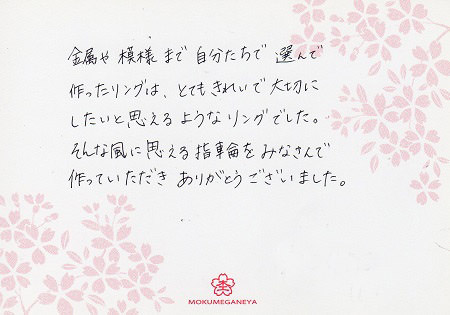 金属や模様まで自分たちで選んで
作ったリングは、とてもきれいで大切に
したいと思えるようなリングでした。
そんな風に思える指輪をみなさんで
作っていただきありがとうございました。
MOKUMEGANEYA